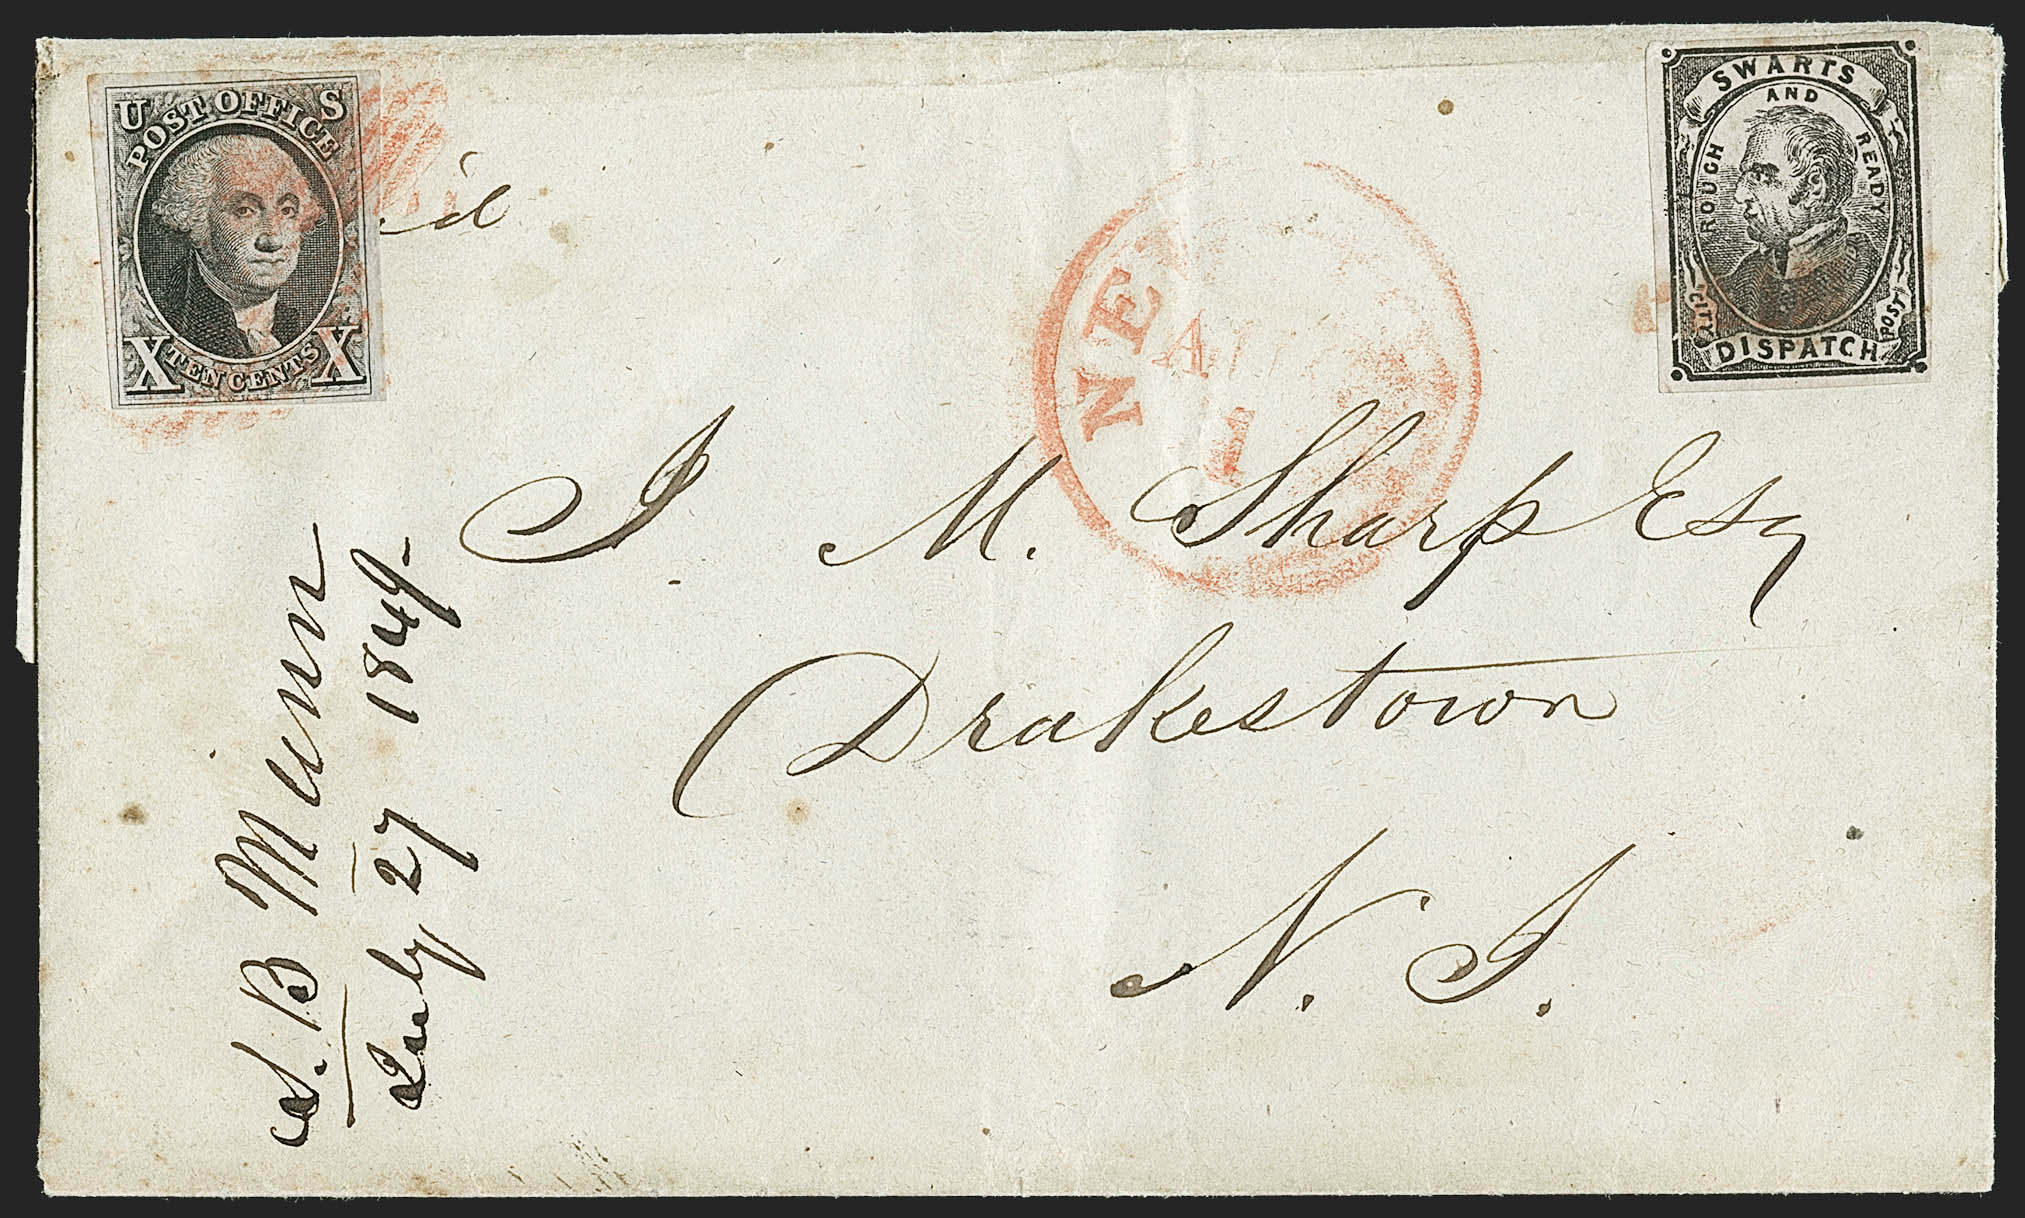 U S
POST OFFICE
X TEN CENTS X
SWARTS
AND
ROUGH READY
CITY POST
DISPATCH
NE
1
J. M. Sharp Esq
Drakestown
N. J.
S. B Munn
July 27 1849.